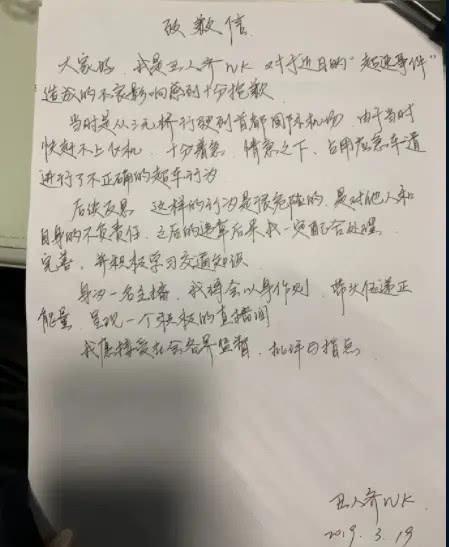 致歉信
大家好，我是丑人齐WK 对于近日的“超速事件”
造成的不良影响感到十分抱歉
当时是从三元桥行驶到首都国际机场 由于当时
快赶不上飞机，十分着急，情急之下，占用应急车道
进行了不正确的超车行为
后续反思 这样的行为是很危险的，是对他人和
自身的不负责任，之后的违章后果我一定配合处理
完善，并积极学习交通知识
身为一名主播，我将会以身作则，带头传递正
能量，呈现一个积极的直播间
我愿接受社会各界监督，批评与指点
丑人齐WK
2019.3.19